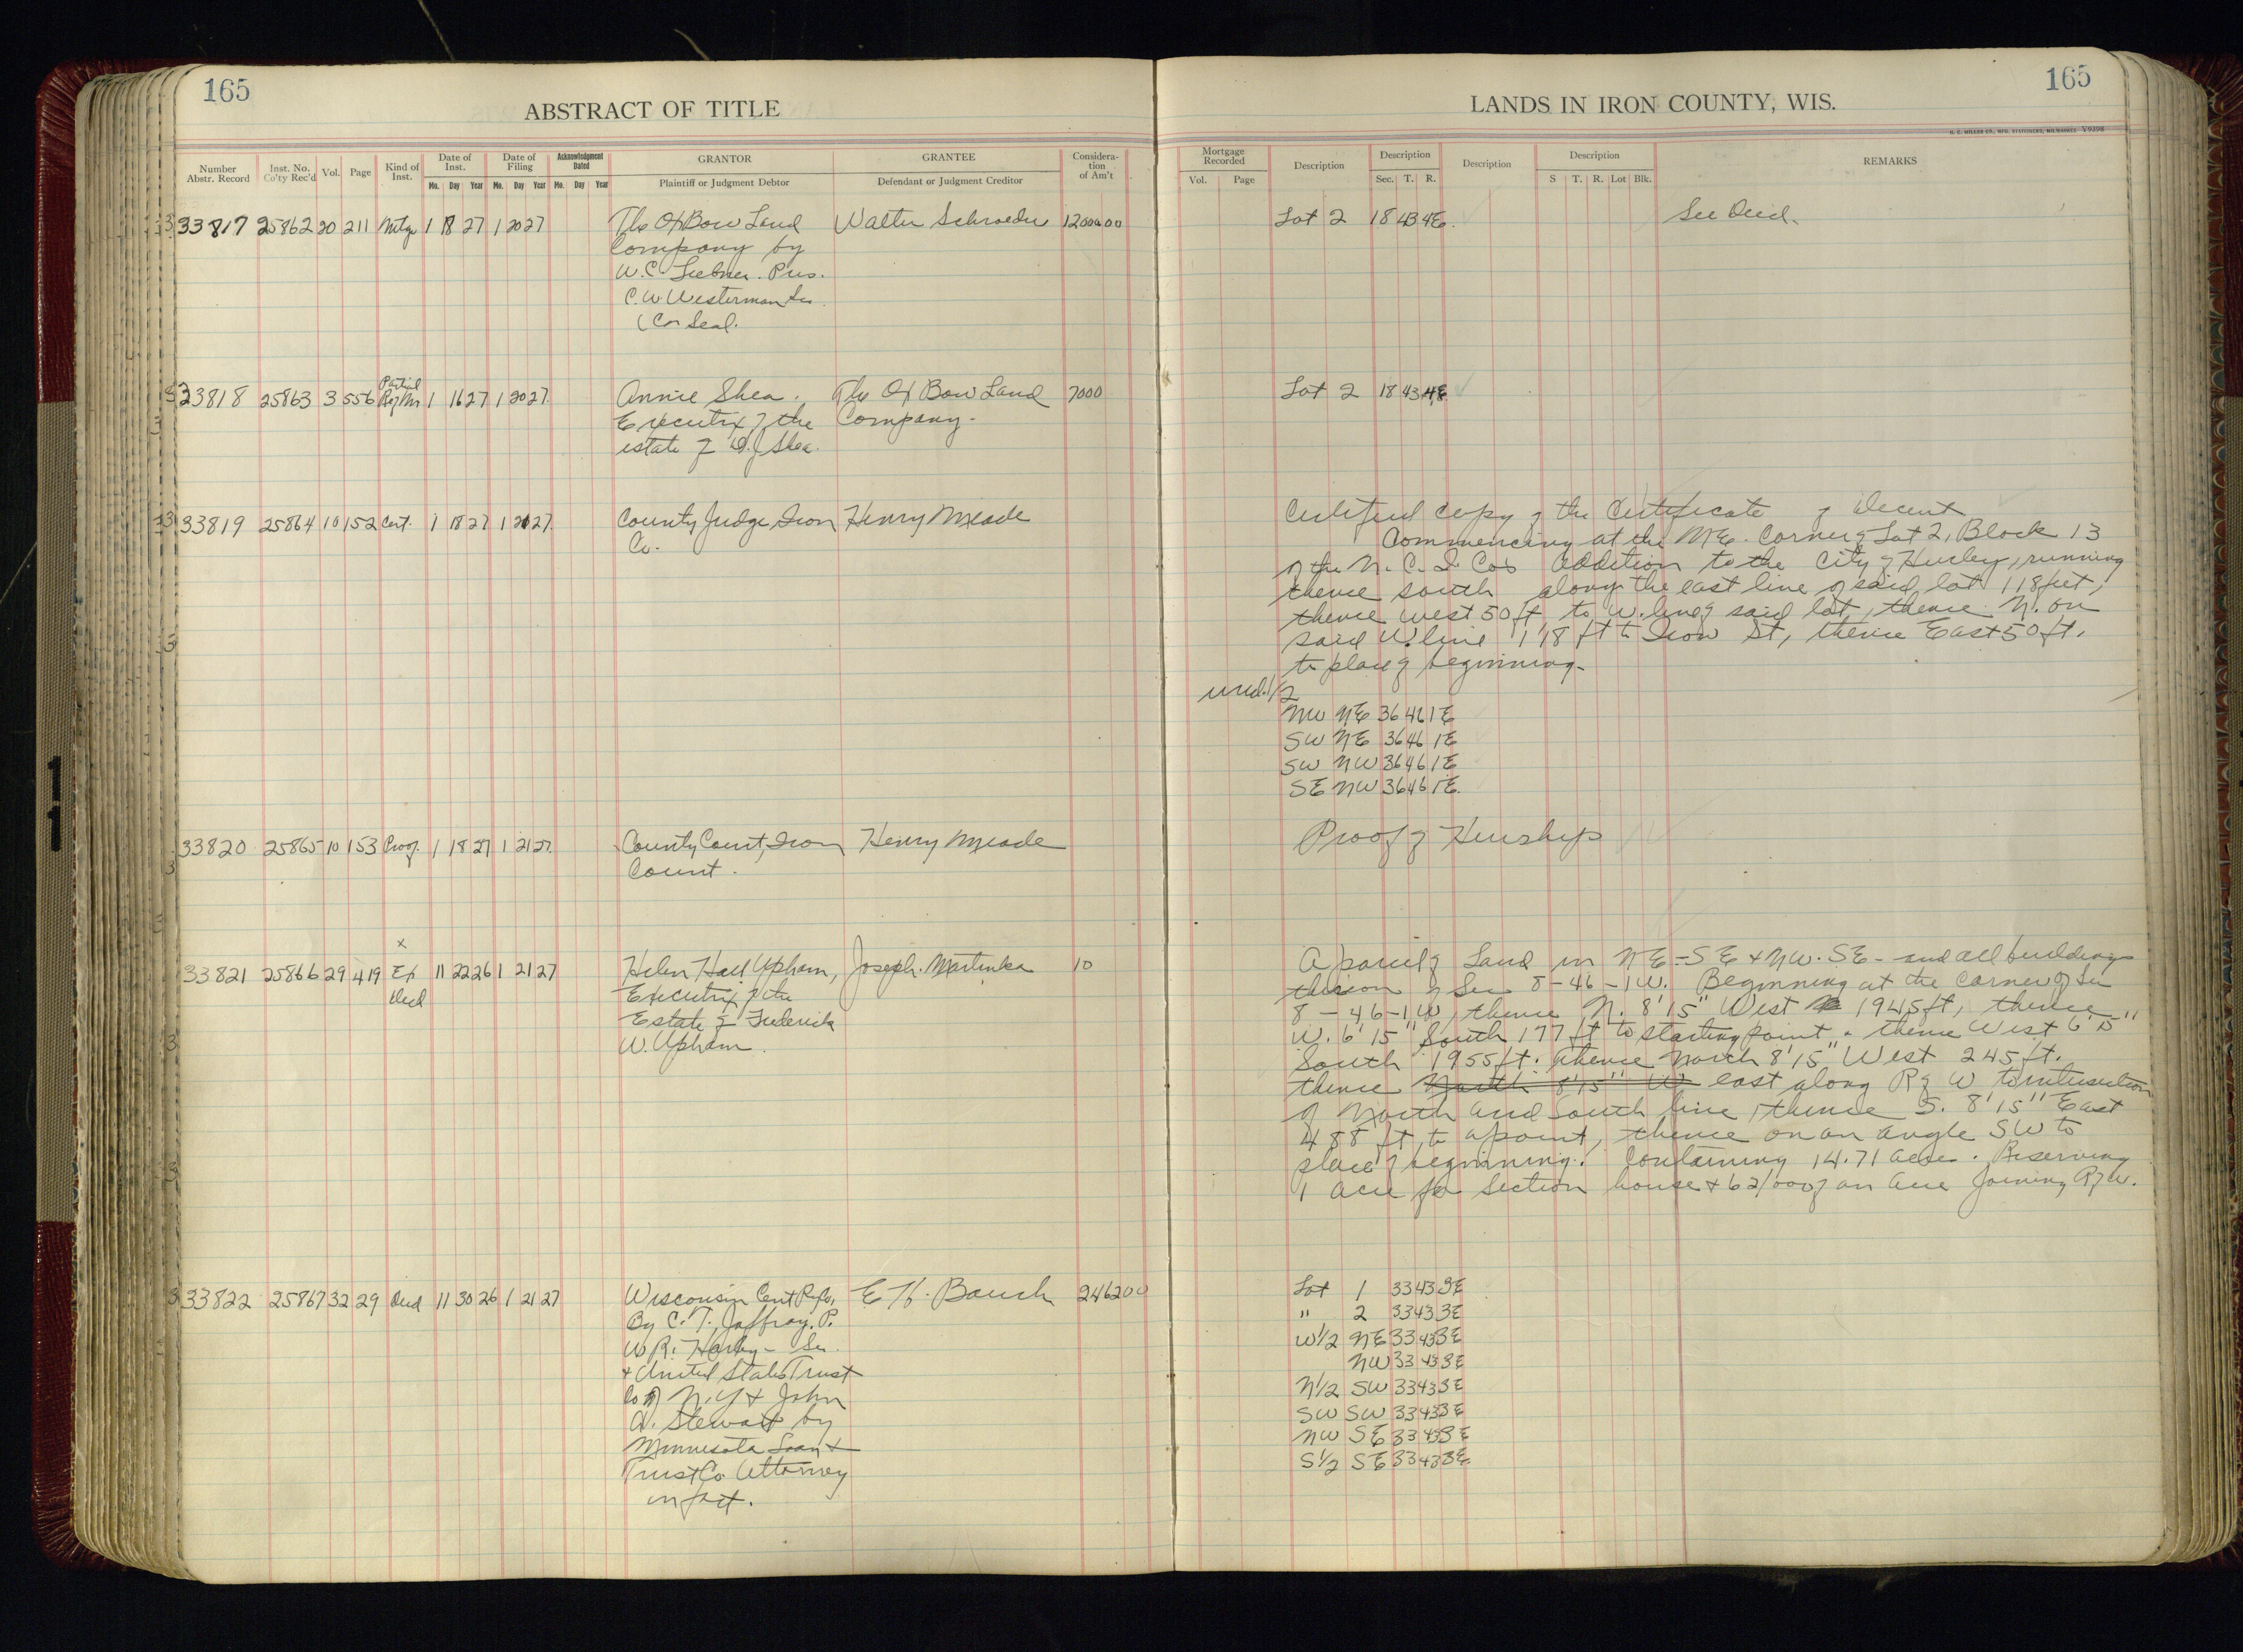 165
ABSTRACT OF TITLE
Number Abstr. Record
Inst. No. Co'ty Rec'd
Vol.
Page
Kind of Inst.
Date of Inst.
Mo. Day Year
Date of Filing
Mo. Day Year
Acknowledgment Dated
Mo. Day Year
GRANTOR
Plaintiff or Judgment Debtor
GRANTEE
Defendant or Judgment Creditor
Consideration of Am't
33817 25862 20 211 Mtge 1 18 27 1 20 27 The Ox Bow Land Walter Schroeder 12000 00
Company by
W.C. Pres.
C.W. Westerman Sec.
(Cor Seal.
Partial
33818 25863 3 556 1 16 27 1 20 27 Annie Shea. The Ox Bow Land 7000
Executrix of the Company.
estate of D.J. Shea.
33819 25864 10 152 Cert. 1 18 27 1 21 27 County Judge, Iron Henry Meade
Co.
33820 25865 10 153 Proof. 1 18 27 1 21 27 County Court, Iron Henry Meade
Count.
x
33821 25866 29 419 Ex 11 22 26 1 21 27 Helen Hall Upham, Joseph Martinka 10
Deed Executrix of the
Estate of Frederick
W. Upham.
33822 25867 32 29 Deed 11 30 26 1 21 27 Wisconsin Cent Ry Co, E. H. Bauch 2462 00
By C. T. Jaffray. P.
W R. Harley - Sec.
+ United States Trust
Co of N.Y + John
A. Stewart by
Minnesota Loan +
Trust Co Attorney
in fact.
LANDS IN IRON COUNTY, WIS.
165
H. C. MILLER CO., MFG. STATIONERS, MILWAUKEE V9398
Mortgage Recorded
Vol. Page
Description
Description
Sec. T. R.
Description
Description
S T. R. Lot Blk.
REMARKS
Lot 2 18 43 4E. See Deed.
Lot 2 18 43 4E
Certified copy of the Certificate of Decent
Commencing at the NE. Corner of Lot 2, Block 13
of the N. C. I Cos Addition to the City of Hurley, running
thence south along the east line of said lot 118 feet,
thence west 50 ft, to W. line of said lot, thence N. on
said W. line 118 ft to Iron St, thence East 50 ft.
to place of beginning.
und. 1/2
NW NE 36 46 1E
SW NE 36 46 1E
SW NW 36 46 1E
SE NW 36 46 1E.
Proof of Heirship
A parcel of Land in NE-SE + NW.SE - and all buildings
thereon of Sec 8-46-1W. Beginning at the corner of Sec
8-46-1W, thence N. 8'15" West 1945 ft, thence
W. 6'15" South 177 ft to starting point. thence West 6'15"
South 1955 ft. thence North 8'15" West 245 ft.
thence North 8'15" W east along R of W to intersection
of North and South line, thence S. 8'15" East
488 ft, to a point, thence on an angle SW to
place of beginning. Containing 14.71 acre. Reserving
1 acre for Section house + 62/000 of an acre Joining R of W.
Lot 1 33 43 3E
" 2 33 43 3E
W 1/2 NE 33 43 3E
NW 33 43 3E
N 1/2 SW 33 43 3E
SW SW 33 43 3E
NW SE 33 43 3E
S 1/2 SE 33 43 3E.